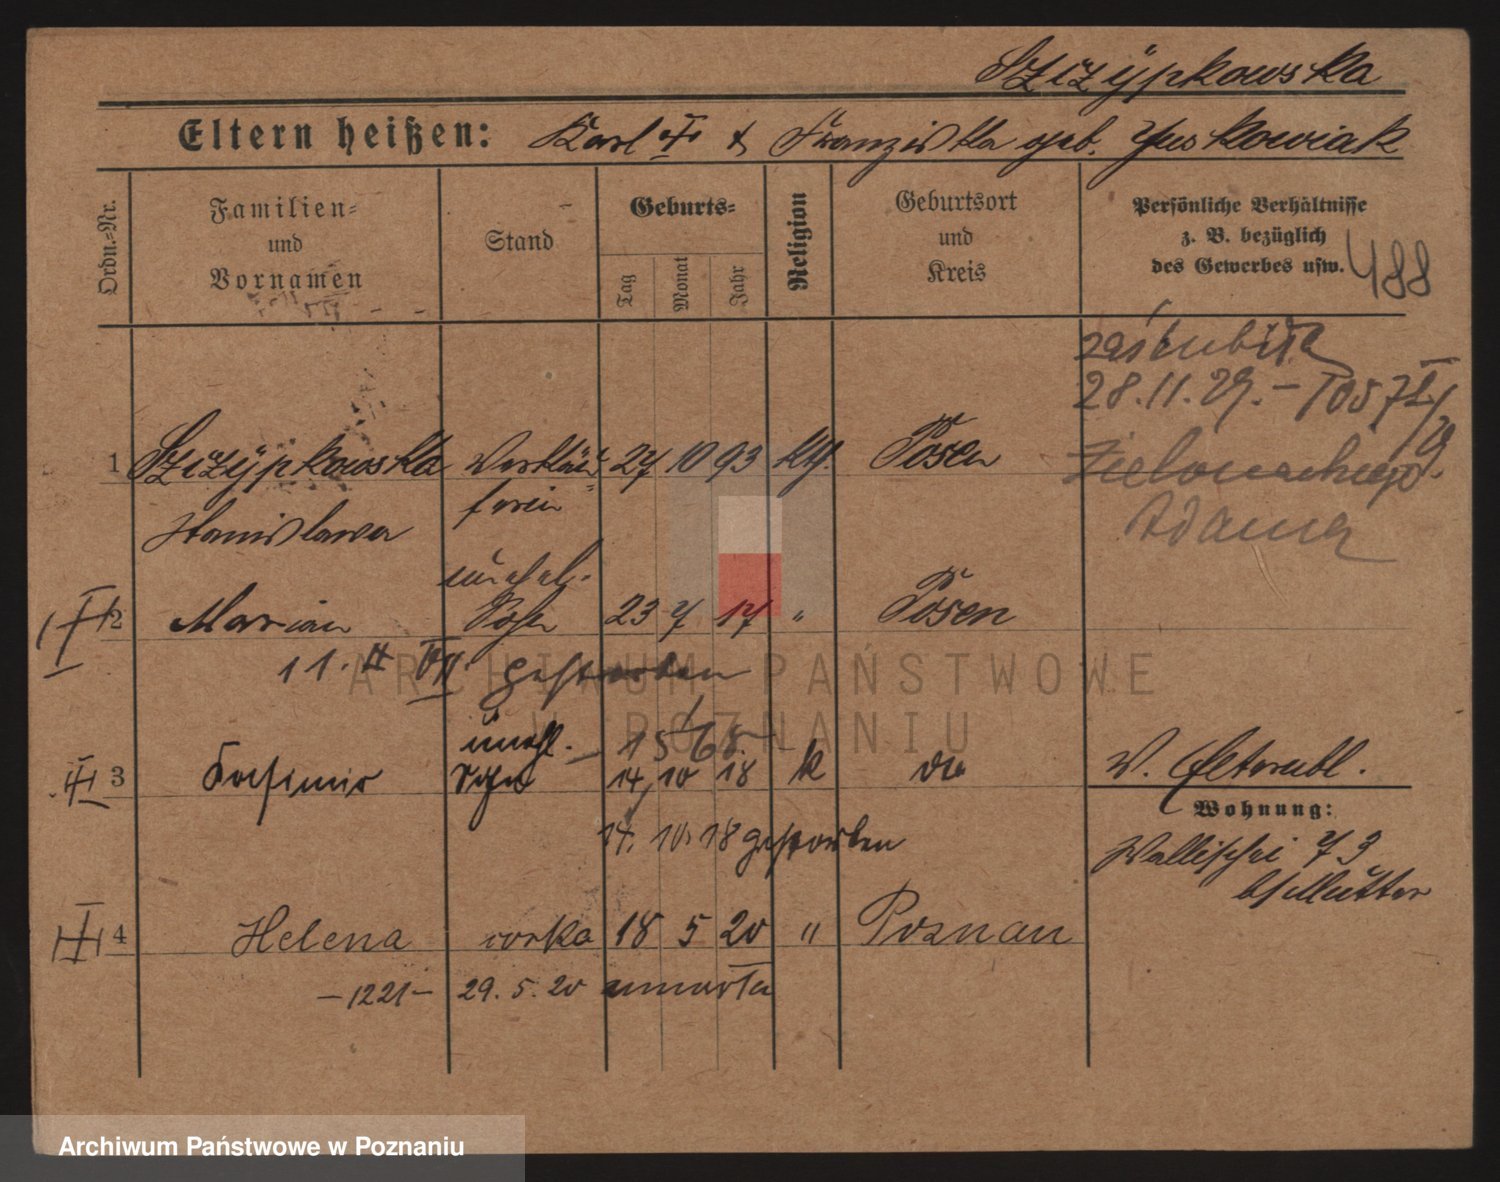 Szczÿpkowska
Eltern heißen: Karl & Franziska geb. Juskowiak
Ordn.=Nr.
Familien=
und
Vornamen
Stand
Geburts=
Tag
Monat
Jahr
Religion
Geburtsort
und
Kreis
Persönliche Verhältnisse
z. B. bezüglich
des Gewerbes usw.
488
zaślubiła
28.11.29. –
1 Szczÿpkowska Verkäu= 27 10 93 kth. Posen
ferin
Stanislawa
Zielonackiego
Adama
unehel.
2 Marian Sohn 23 7 17 " Posen
11. gestorben
unehl. –
3 Kasimir Sohn 14 10 18 k do
14. 10. 18 gestorben
W. Elternbl.
Wohnung:
Wallischei 73
b/Mutter
4 Helena corka 18 5 20 " Poznan
– 1221 – 29. 5. 20 umarła
ARCHIWUM PAŃSTWOWE
W POZNANIU
Archiwum Państwowe w Poznaniu